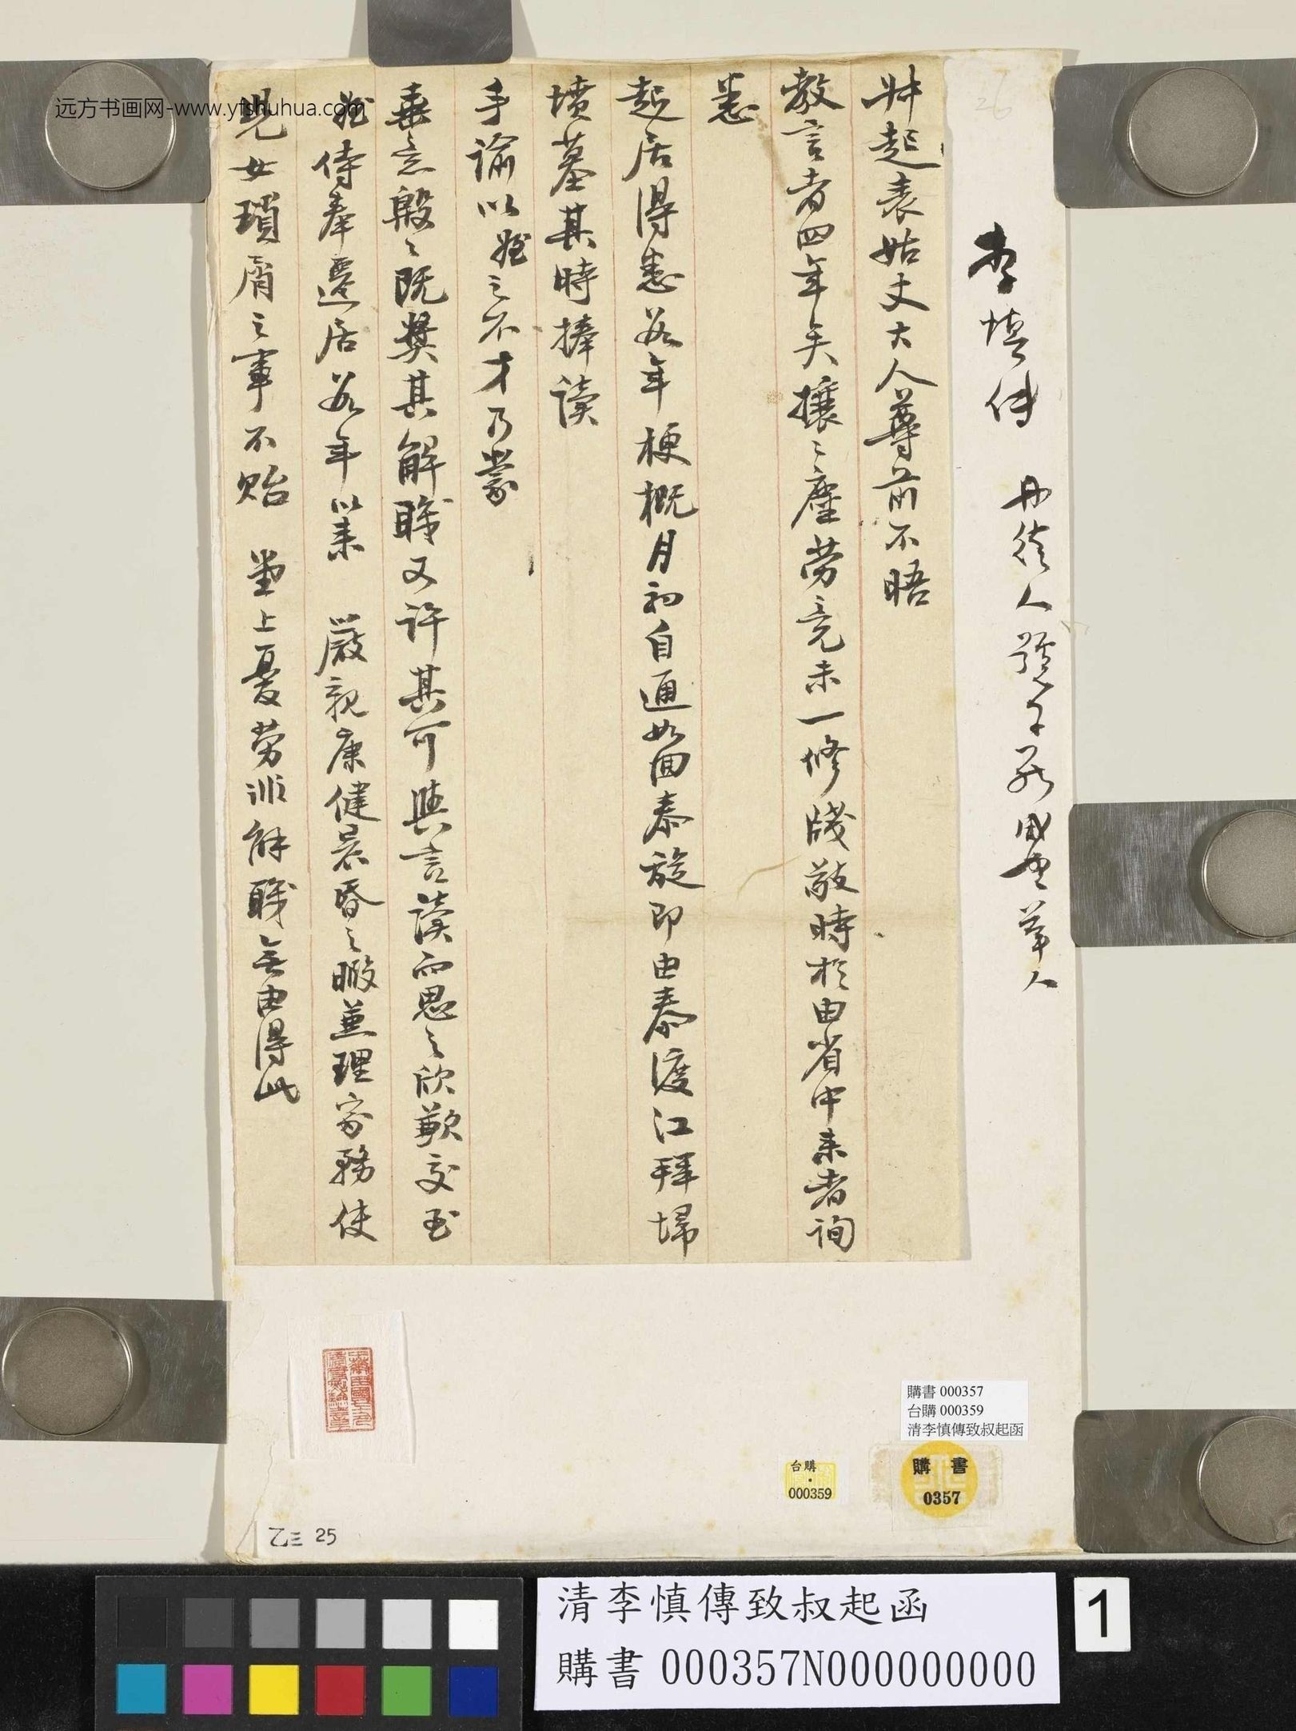 远方书画网-www.yfshuhua.com
26
李慎傳
丹徒人號子薪咸豐舉人
叔起表姑丈大人尊前不晤
教言者四年矣攘〻塵勞竟未一修牋敬時於由省中来者詢
悉
起居得悉數年梗概月初自通如回泰旋即由泰渡江拜埽
墳墓其時捧讀
手諭以姪之不才乃蒙
垂念殷〻既奬其解職又許其可與言讀而思之欣歉交至
姪侍奉還居數年以来 嚴親康健晨昏之暇並理家務使
兒女瑣屑之事不貽 堂上憂勞非解職無由得此
購書 000357
台購 000359
清李慎傳致叔起函
台購
000359
購書
0357
乙三 25
清李慎傳致叔起函
購書 000357N000000000
1